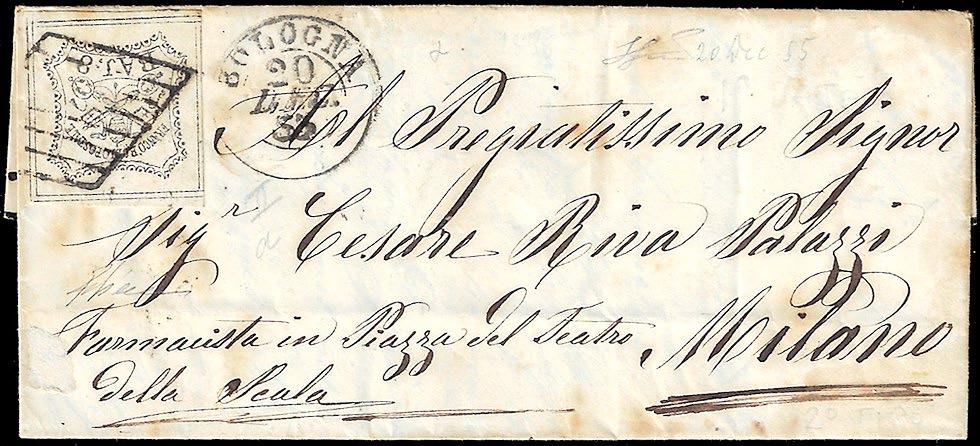 BOLOGNA
20
DIC.
55
20 Dic 55
Al Pregiatissimo Signor
Sigr Cesare Riva Palazzi
Farmacista in Piazza del Teatro Milano
della Scala
FRANCO BOLLO POSTALE
BAJ. 8